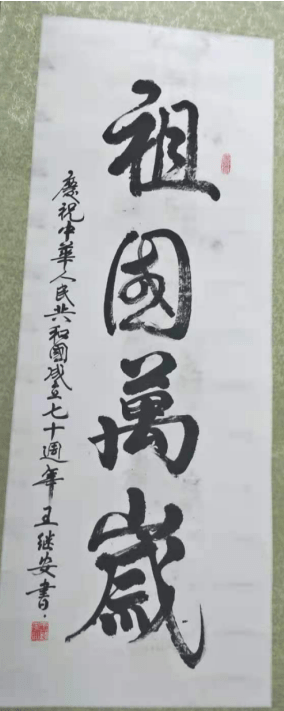 祖國萬歲
慶祝中華人民共和國成立七十週年王继安書